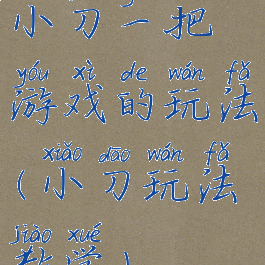 小刀一把
yóu xì de wán fǎ
游戏的玩法
xiǎo dāo wán fǎ
(小刀玩法
jiào xué
教学)